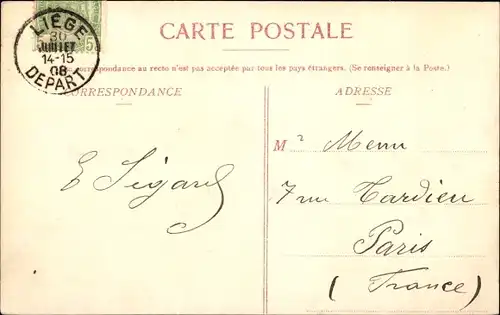 CARTE POSTALE
LIÉGE
30
JUILLET
14-15
08
DEPART
5
5
correspondance au recto n'est pas acceptée par tous les pays étrangers. (Se renseigner à la Poste.)
CORRESPONDANCE
ADRESSE
Mr Menu
7 rue Tardieu
Paris
(France)
E Sigard